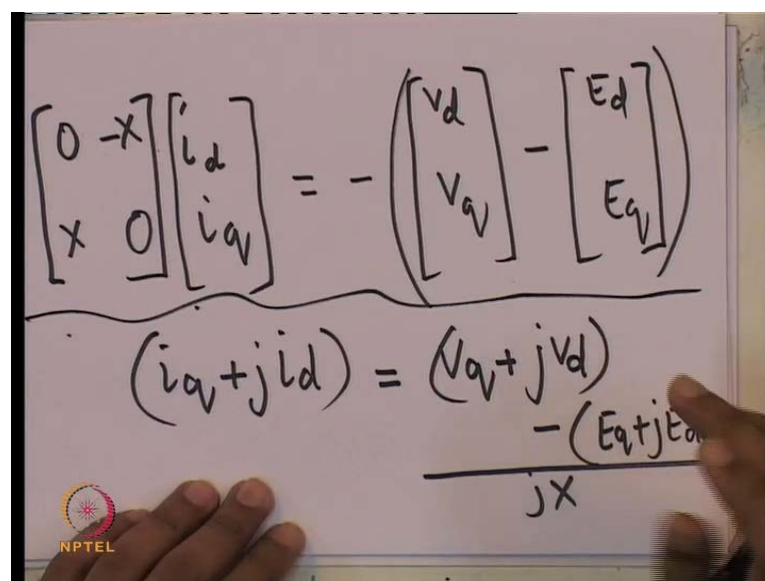 [0 -X; X 0] [i_d; i_q] = - ([v_d; v_q] - [E_d; E_q])
(i_q + j i_d) = (v_q + j v_d)
- (E_q + j E_d
jX
NPTEL